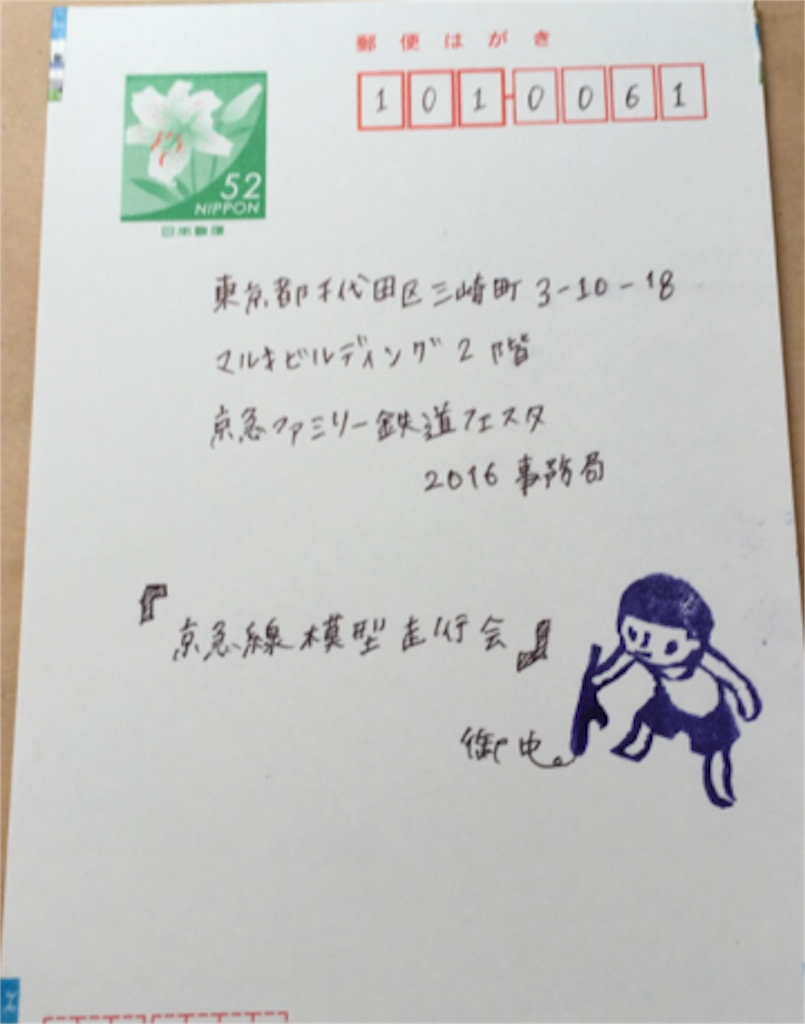 郵便はがき
1010061
52
NIPPON
日本郵便
東京都千代田区三崎町3-10-18
マルキビルディング2階
京急ファミリー鉄道フェスタ
2016事務局
『京急線模型走行会』
御中